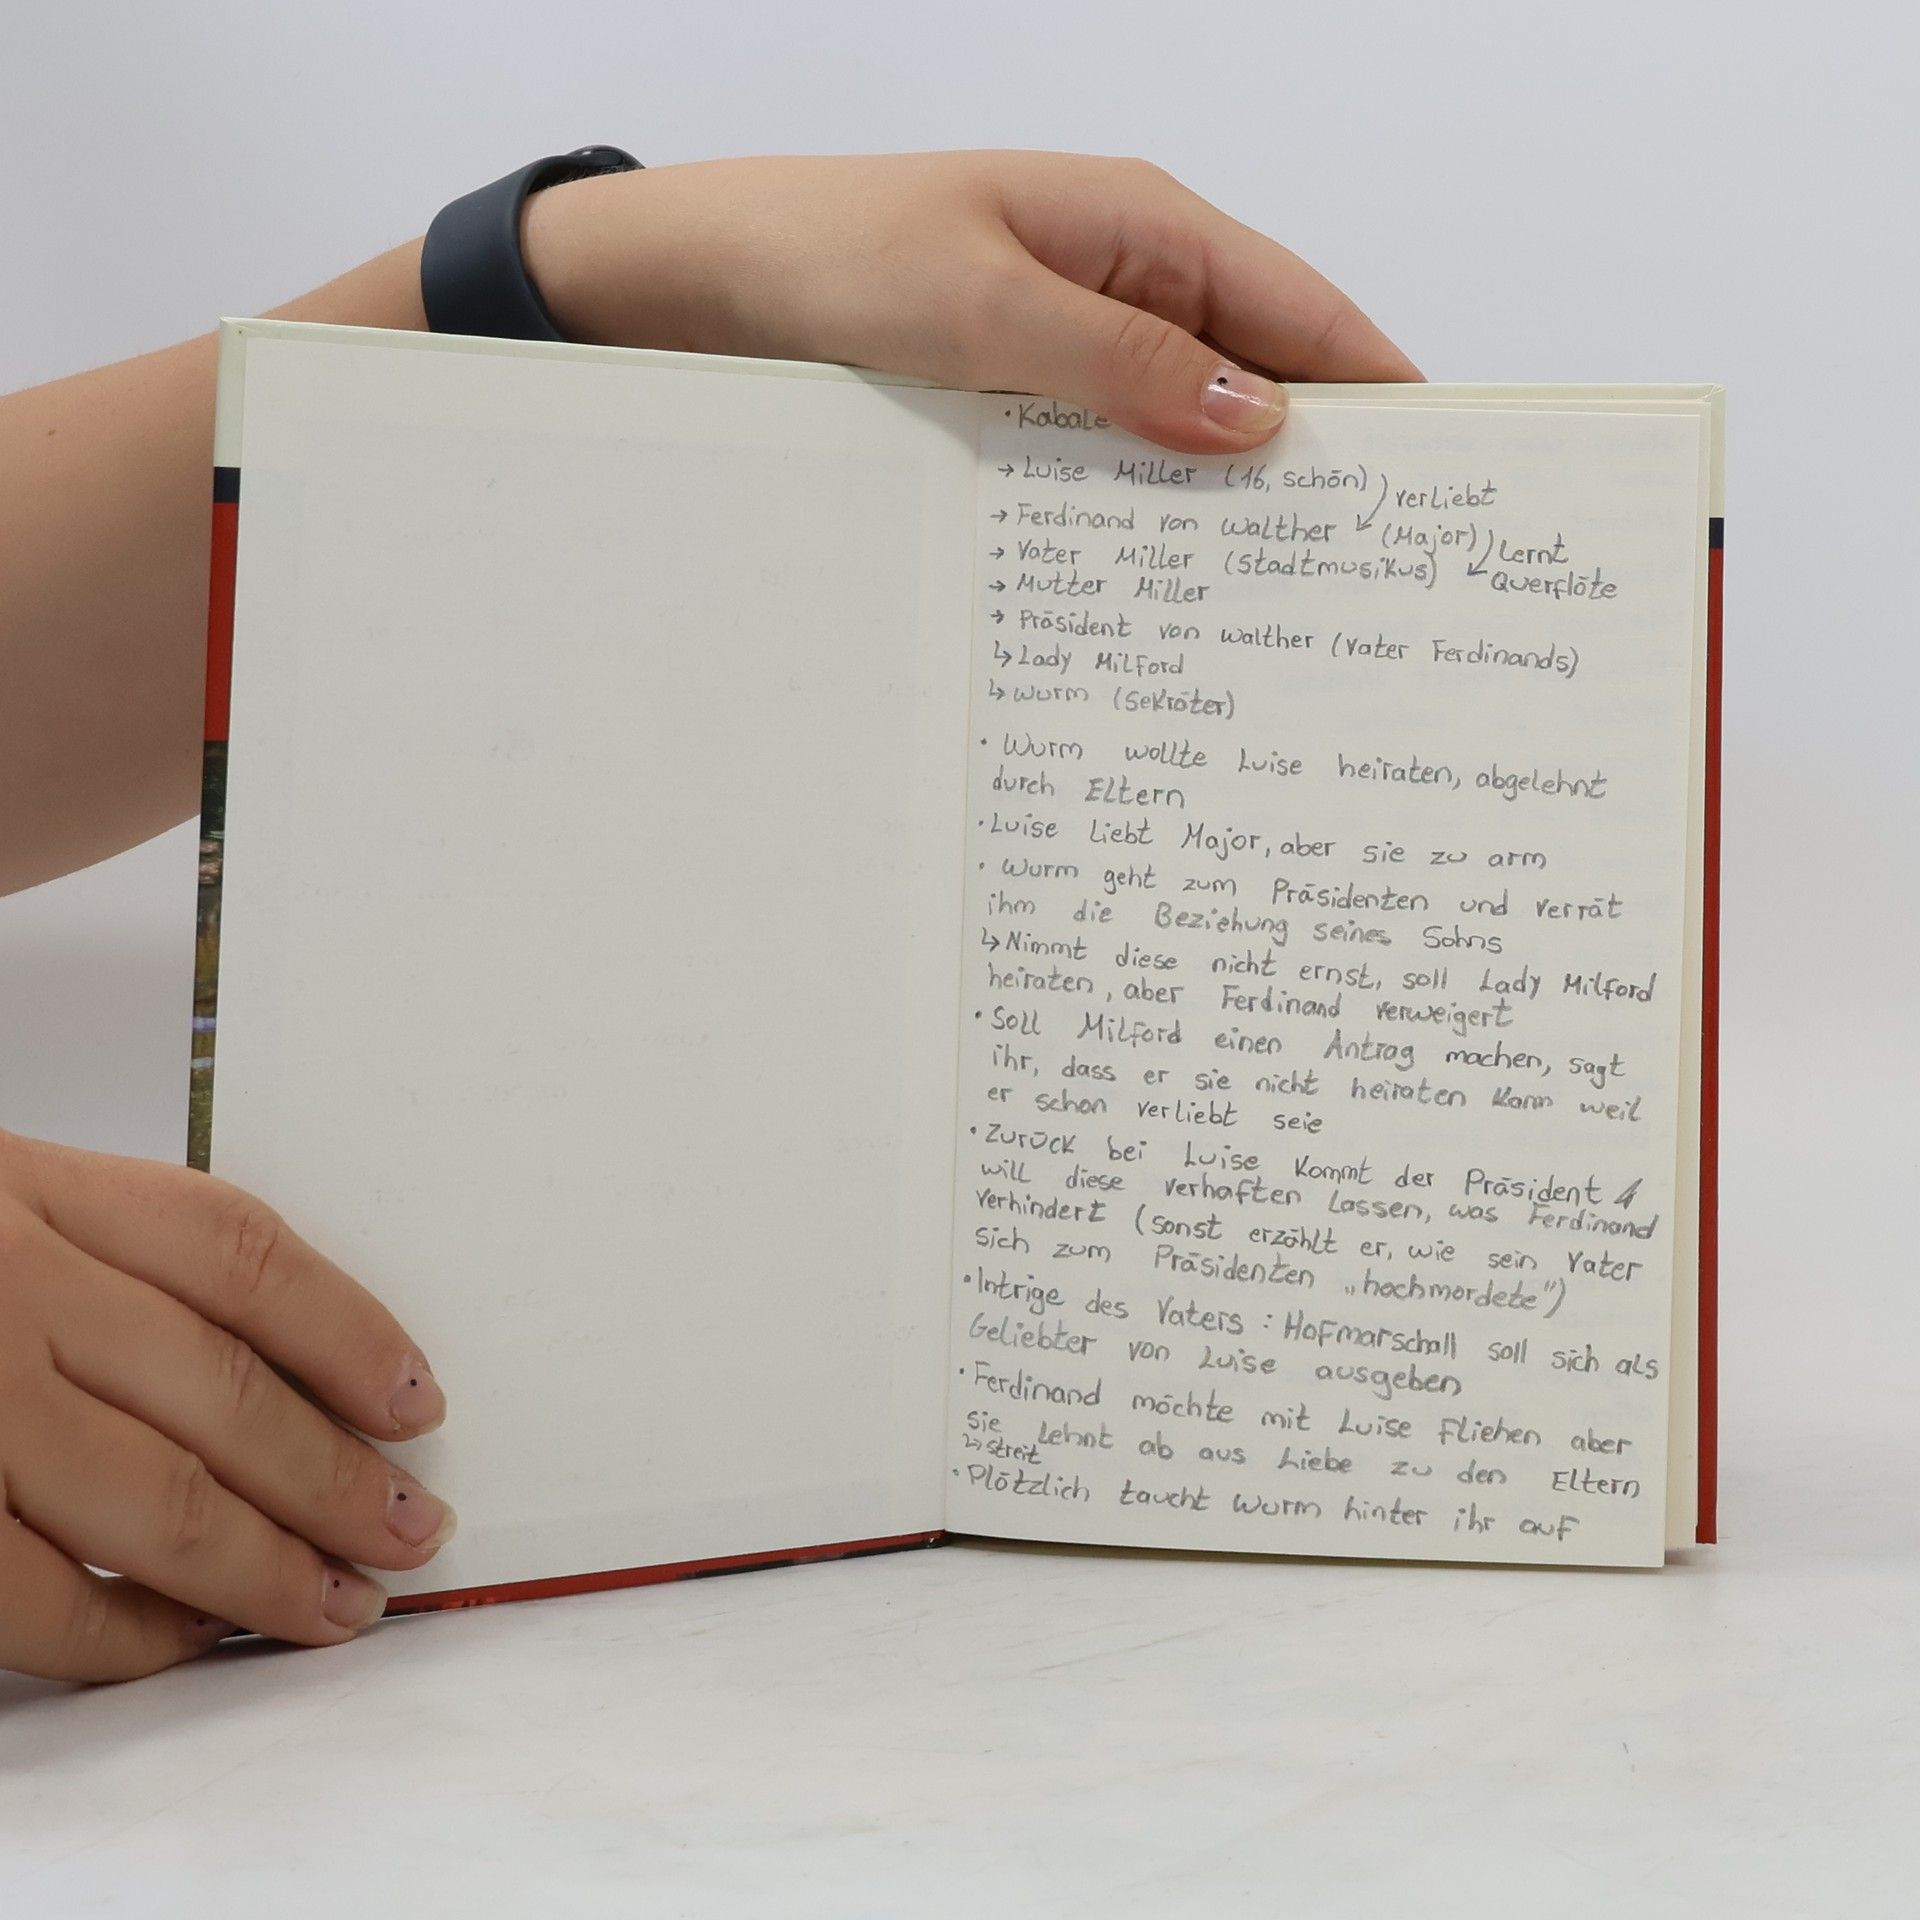 · Kabale
→ Luise Miller (16, schön) verliebt
→ Ferdinand von Walther (Major) lernt
→ Vater Miller (Stadtmusikus) Querflöte
→ Mutter Miller
→ Präsident von Walther (Vater Ferdinands)
↳ Lady Milford
↳ Wurm (Sekräter)
· Wurm wollte Luise heiraten, abgelehnt
durch Eltern
· Luise liebt Major, aber sie zu arm
· Wurm geht zum Präsidenten und verrät
ihm die Beziehung seines Sohns
↳ Nimmt diese nicht ernst, soll Lady Milford
heiraten, aber Ferdinand verweigert
· Soll Milford einen Antrag machen, sagt
ihr, dass er sie nicht heiraten kann weil
er schon verliebt seie
· Zurück bei Luise kommt der Präsident &
will diese verhaften lassen, was Ferdinand
verhindert (sonst erzählt er, wie sein Vater
sich zum Präsidenten „hochmordete")
· Intrige des Vaters : Hofmarschall soll sich als
Geliebter von Luise ausgeben
· Ferdinand möchte mit Luise fliehen aber
sie lehnt ab aus Liebe zu den Eltern
↳ streit
· Plötzlich taucht Wurm hinter ihr auf